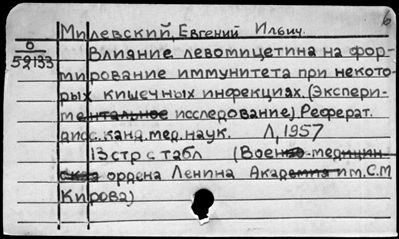 б
Милевский, Евгений Ильич.
О
52133
Влияние левомицетина на фор-
мирование иммунитета при некото-
рых кишечных инфекциях. (Экспери-
ментальное исследование) Реферат.
дисс. канд. мед. наук. Л, 1957
13 стр с табл (Военно-медицин-
ская ордена Ленина Академия им. С.М
Кирова)